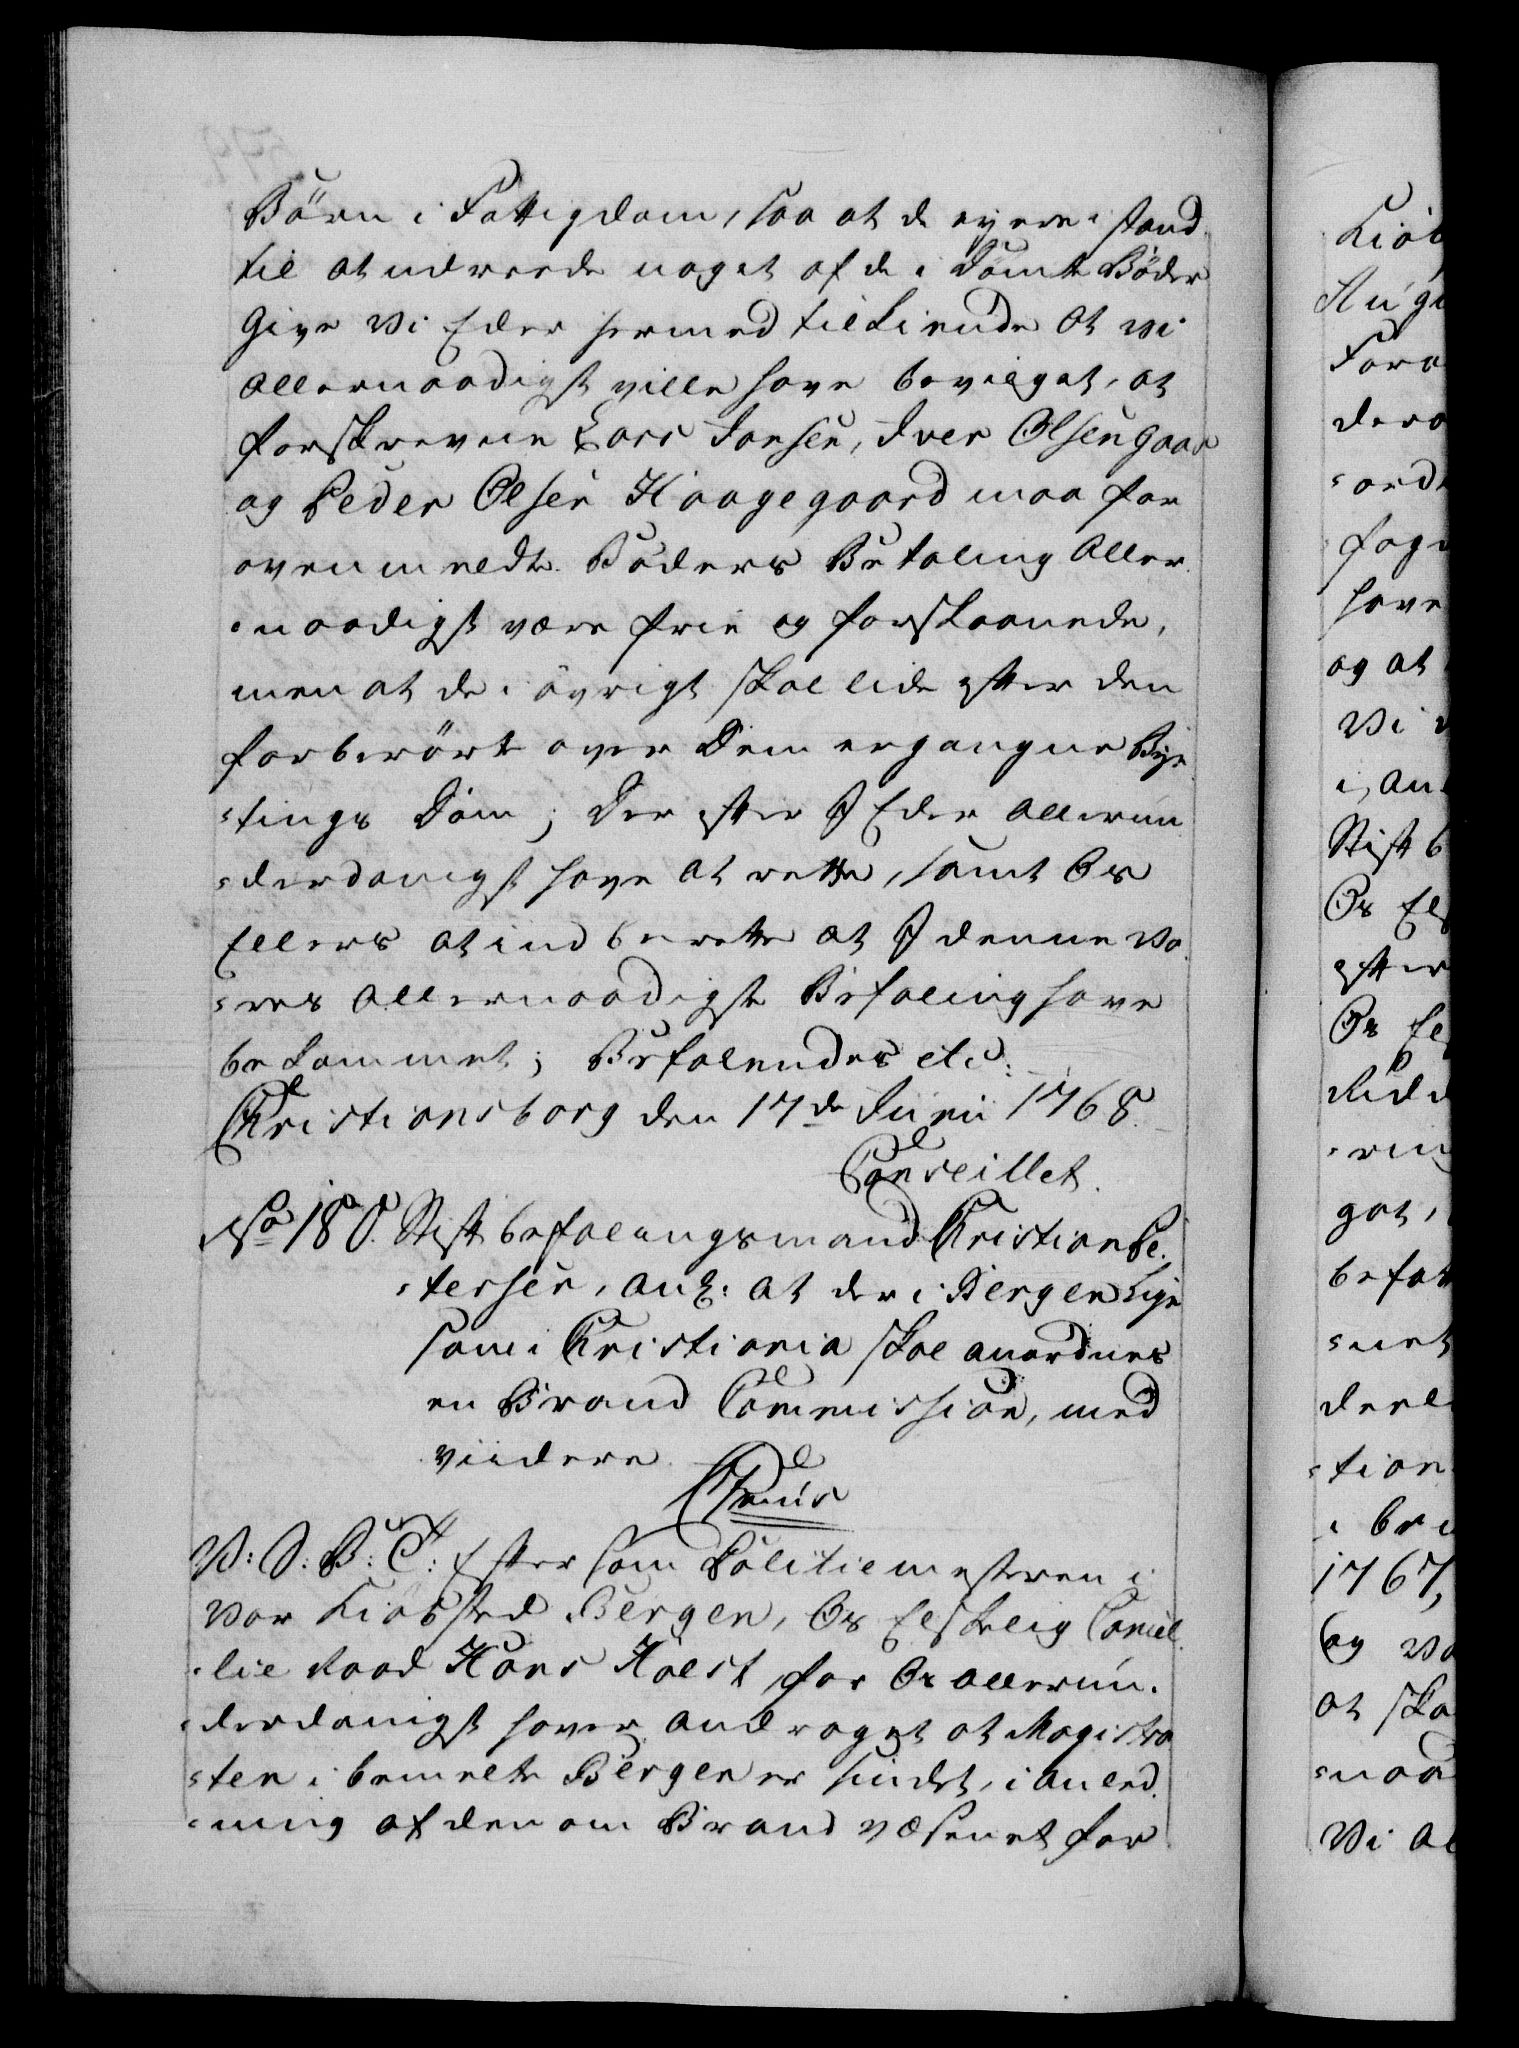 Børn i Fattigdom, saa at de ey ere i stand
til at udreede noget af de idømte Bøder
Give Vi Eder hermed tilkiende at Vi
allernaadigst ville have bevilget, at
forskrevne Lars Jonsen, Iver Olsen Gaar
og Peder Olsen Haagegaard maa for
ovenmeldte Bøders Betaling Aller
-naadigst være frie og forskaanede,
men at de i øvrigt skal lide efter den
forberørte over Dem ergangne Bye
-tings Dom; Der efter I Eder allerun
-derdanigst have at rette, samt Os
Ellers at indberette at I denne Vo
-res allernaadigste Befaling have
bekommet; Befalendes etc:
Christiansborg den 17de Junii 1768.
Conseillet.
No 180. Stiftbefalingsmand Christian Pe
-tersen, anl: at der i Bergen Lige
som i Christiania skal anordnes
en Brand Commission, med
viidere
Chr: 7mus
V: G: B: T: Eftersom Politiemesteren i
Vor Kiøbsted Bergen, Os Elskelig Cancel
-lie Raad Hans Holst for Os allerun-
-derdanigst haver andraget at Magistra
-ten i bemelte Bergen er sindet, i anled
-ning af den om Brand væsenet for
Kiøb
Aug
Fora
dera
-ordt
fogd
have
og at
Vi
i, An
Stiftb
Os Els
efter
Os El
Ridd
-ring
gat,
befat
-net
derl
-tion
i bri
1767,
og Vo
at ska
-naa
Vi al